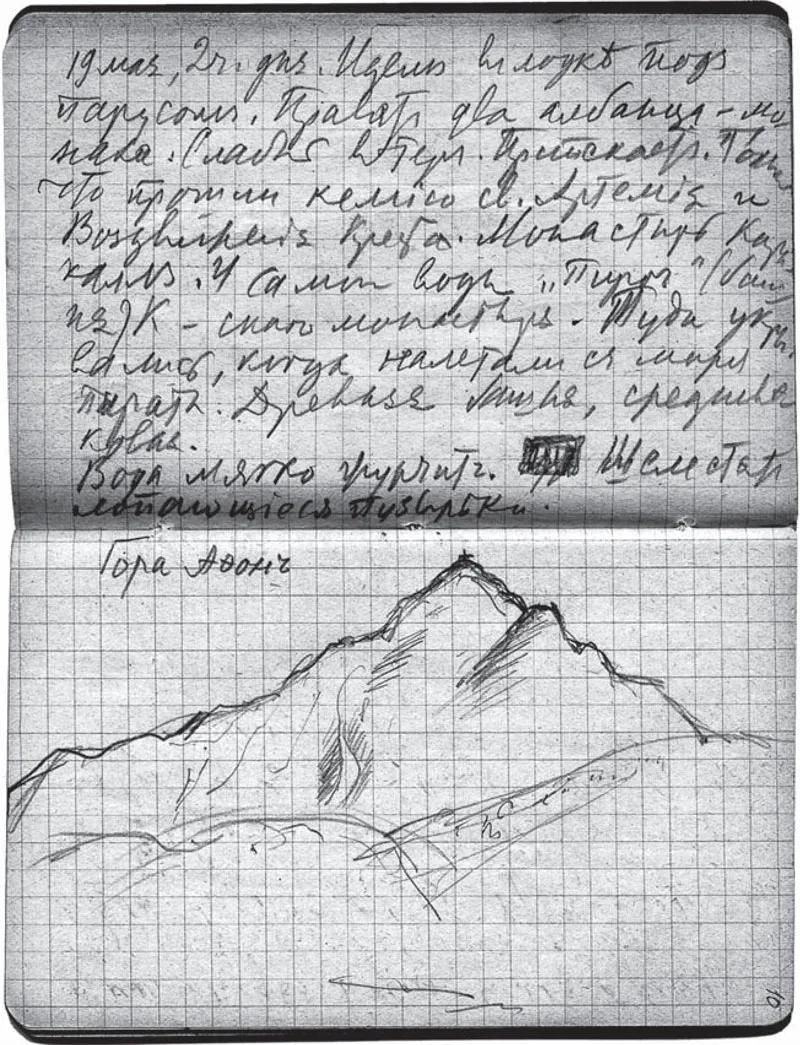 19 мая, 2 ч. дня. Идемъ въ лодкѣ подъ
парусомъ. Правятъ два албанца - мо
наха. Слабый вѣтеръ. Припекаетъ. Только
что прошли келiю св. Артемiя и
Воздвиженiя Креста. Монастырь Кара
каллъ. У самой воды „Пиргъ" (баш
ня) К - скаго монастыря. Туда укры
вались, когда налетали съ моря
пираты. Древняя башня, среднев
ковая.
Вода мягко журчитъ. Шелестятъ
лопающiеся пузырьки.
Гора Аѳонъ
10